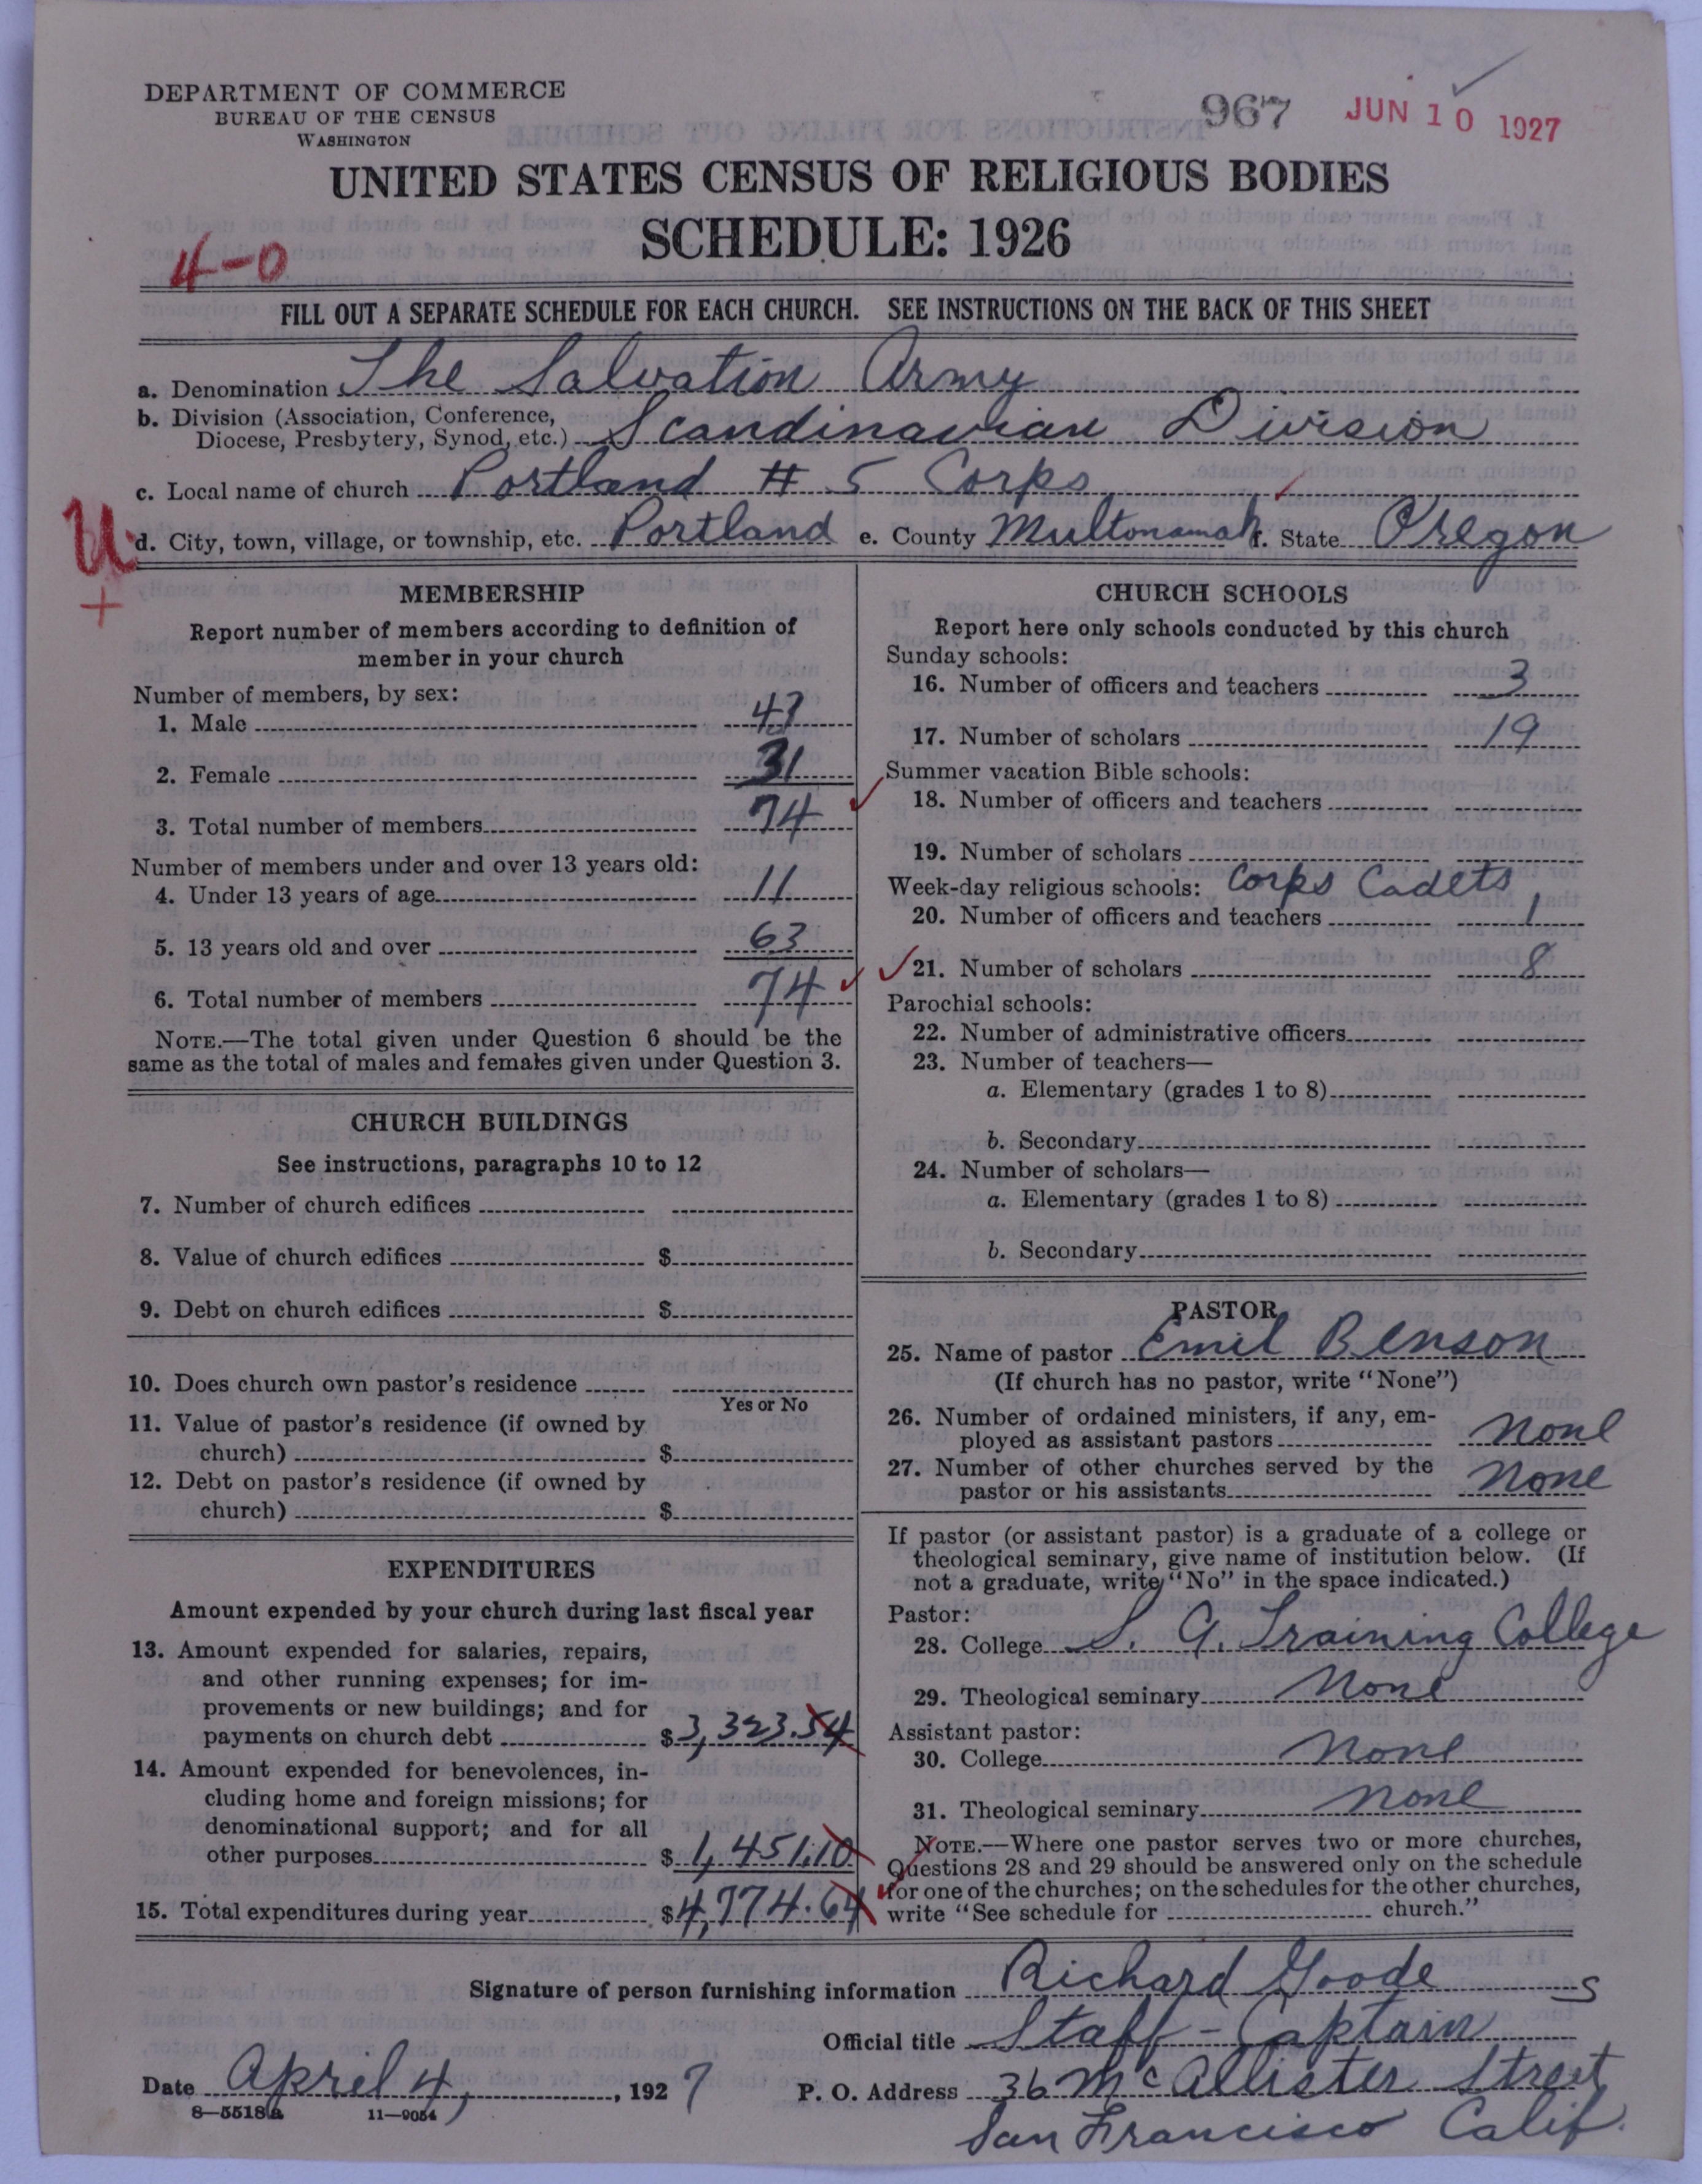 DEPARTMENT OF COMMERCE
BUREAU OF THE CENSUS
WASHINGTON
967 JUN 10 1927
UNITED STATES CENSUS OF RELIGIOUS BODIES
SCHEDULE: 1926
4-0
FILL OUT A SEPARATE SCHEDULE FOR EACH CHURCH. SEE INSTRUCTIONS ON THE BACK OF THIS SHEET
a. Denomination The Salvation Army
b. Division (Association, Conference,
Diocese, Presbytery, Synod, etc.) Scandinavian Division
c. Local name of church Portland # 5 Corps
U
d. City, town, village, or township, etc. Portland e. County Multonamah f. State Oregon
+
MEMBERSHIP
Report number of members according to definition of
member in your church
Number of members, by sex:
1. Male 43
2. Female 31
3. Total number of members 74
Number of members under and over 13 years old:
4. Under 13 years of age 11
5. 13 years old and over 63
6. Total number of members 74
NOTE.—The total given under Question 6 should be the
same as the total of males and females given under Question 3.
CHURCH BUILDINGS
See instructions, paragraphs 10 to 12
7. Number of church edifices
8. Value of church edifices $
9. Debt on church edifices $
10. Does church own pastor's residence
Yes or No
11. Value of pastor's residence (if owned by
church) $
12. Debt on pastor's residence (if owned by
church) $
EXPENDITURES
Amount expended by your church during last fiscal year
13. Amount expended for salaries, repairs,
and other running expenses; for im-
provements or new buildings; and for
payments on church debt $3,323.54
14. Amount expended for benevolences, in-
cluding home and foreign missions; for
denominational support; and for all
other purposes $1,451.10
15. Total expenditures during year $4,774.64
CHURCH SCHOOLS
Report here only schools conducted by this church
Sunday schools:
16. Number of officers and teachers 3
17. Number of scholars 19
Summer vacation Bible schools:
18. Number of officers and teachers
19. Number of scholars
Week-day religious schools: Corps Cadets
20. Number of officers and teachers 1
21. Number of scholars 8
Parochial schools:
22. Number of administrative officers
23. Number of teachers—
a. Elementary (grades 1 to 8)
b. Secondary
24. Number of scholars—
a. Elementary (grades 1 to 8)
b. Secondary
PASTOR
25. Name of pastor Emil Benson
(If church has no pastor, write "None")
26. Number of ordained ministers, if any, em-
ployed as assistant pastors None
27. Number of other churches served by the
pastor or his assistants None
If pastor (or assistant pastor) is a graduate of a college or
theological seminary, give name of institution below. (If
not a graduate, write "No" in the space indicated.)
Pastor:
28. College S. A. Training College
29. Theological seminary None
Assistant pastor:
30. College None
31. Theological seminary None
NOTE.—Where one pastor serves two or more churches,
Questions 28 and 29 should be answered only on the schedule
for one of the churches; on the schedules for the other churches,
write "See schedule for church."
Signature of person furnishing information Richard Goode S
Official title Staff-Captain
Date April 4, 1927 P. O. Address 36 McAllister Street
8—5518a 11—9054 San Francisco Calif.